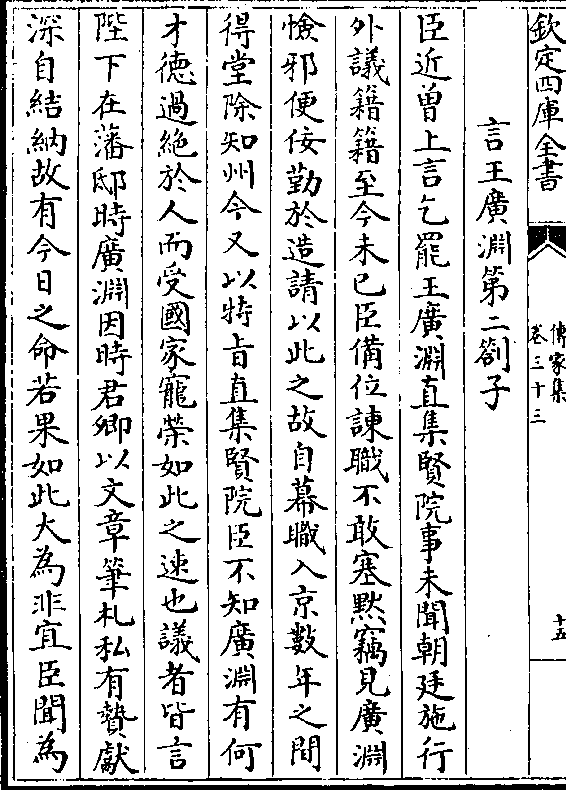 欽定四庫全書
傳家集
卷三十三
十五
言王廣淵第二劄子
臣近曽上言乞罷王廣淵直集賢院事未聞朝廷施行
外議籍籍至今未已臣備位諫職不敢塞黙竊見廣淵
憸邪便佞勤於造請以此之故自幕職入京數年之間
得堂除知州今又以特㫖直集賢院臣不知廣淵有何
才德過絶於人而受國家寵榮如此之速也議者皆言
陛下在藩邸時廣淵因時君卿以文章筆札私有贄獻
深自結納故有今日之命若果如此大為非宜臣聞為